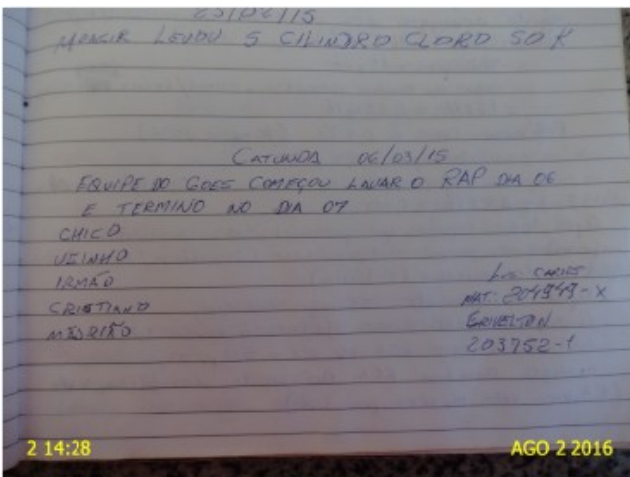 23/02/15
MOACIR LEVOU 5 CILINDRO CLORO 50 K
CATUNDA 06/03/15
EQUIPE DO GOES COMEÇOU LAVAR O RAP DIA 06
E TERMINO NO DIA 07
CHICO
IRMÃO
CRISTIANO
MAT: 204949-X
ERIVELTON
203752-1
2 14:28
AGO 2 2016